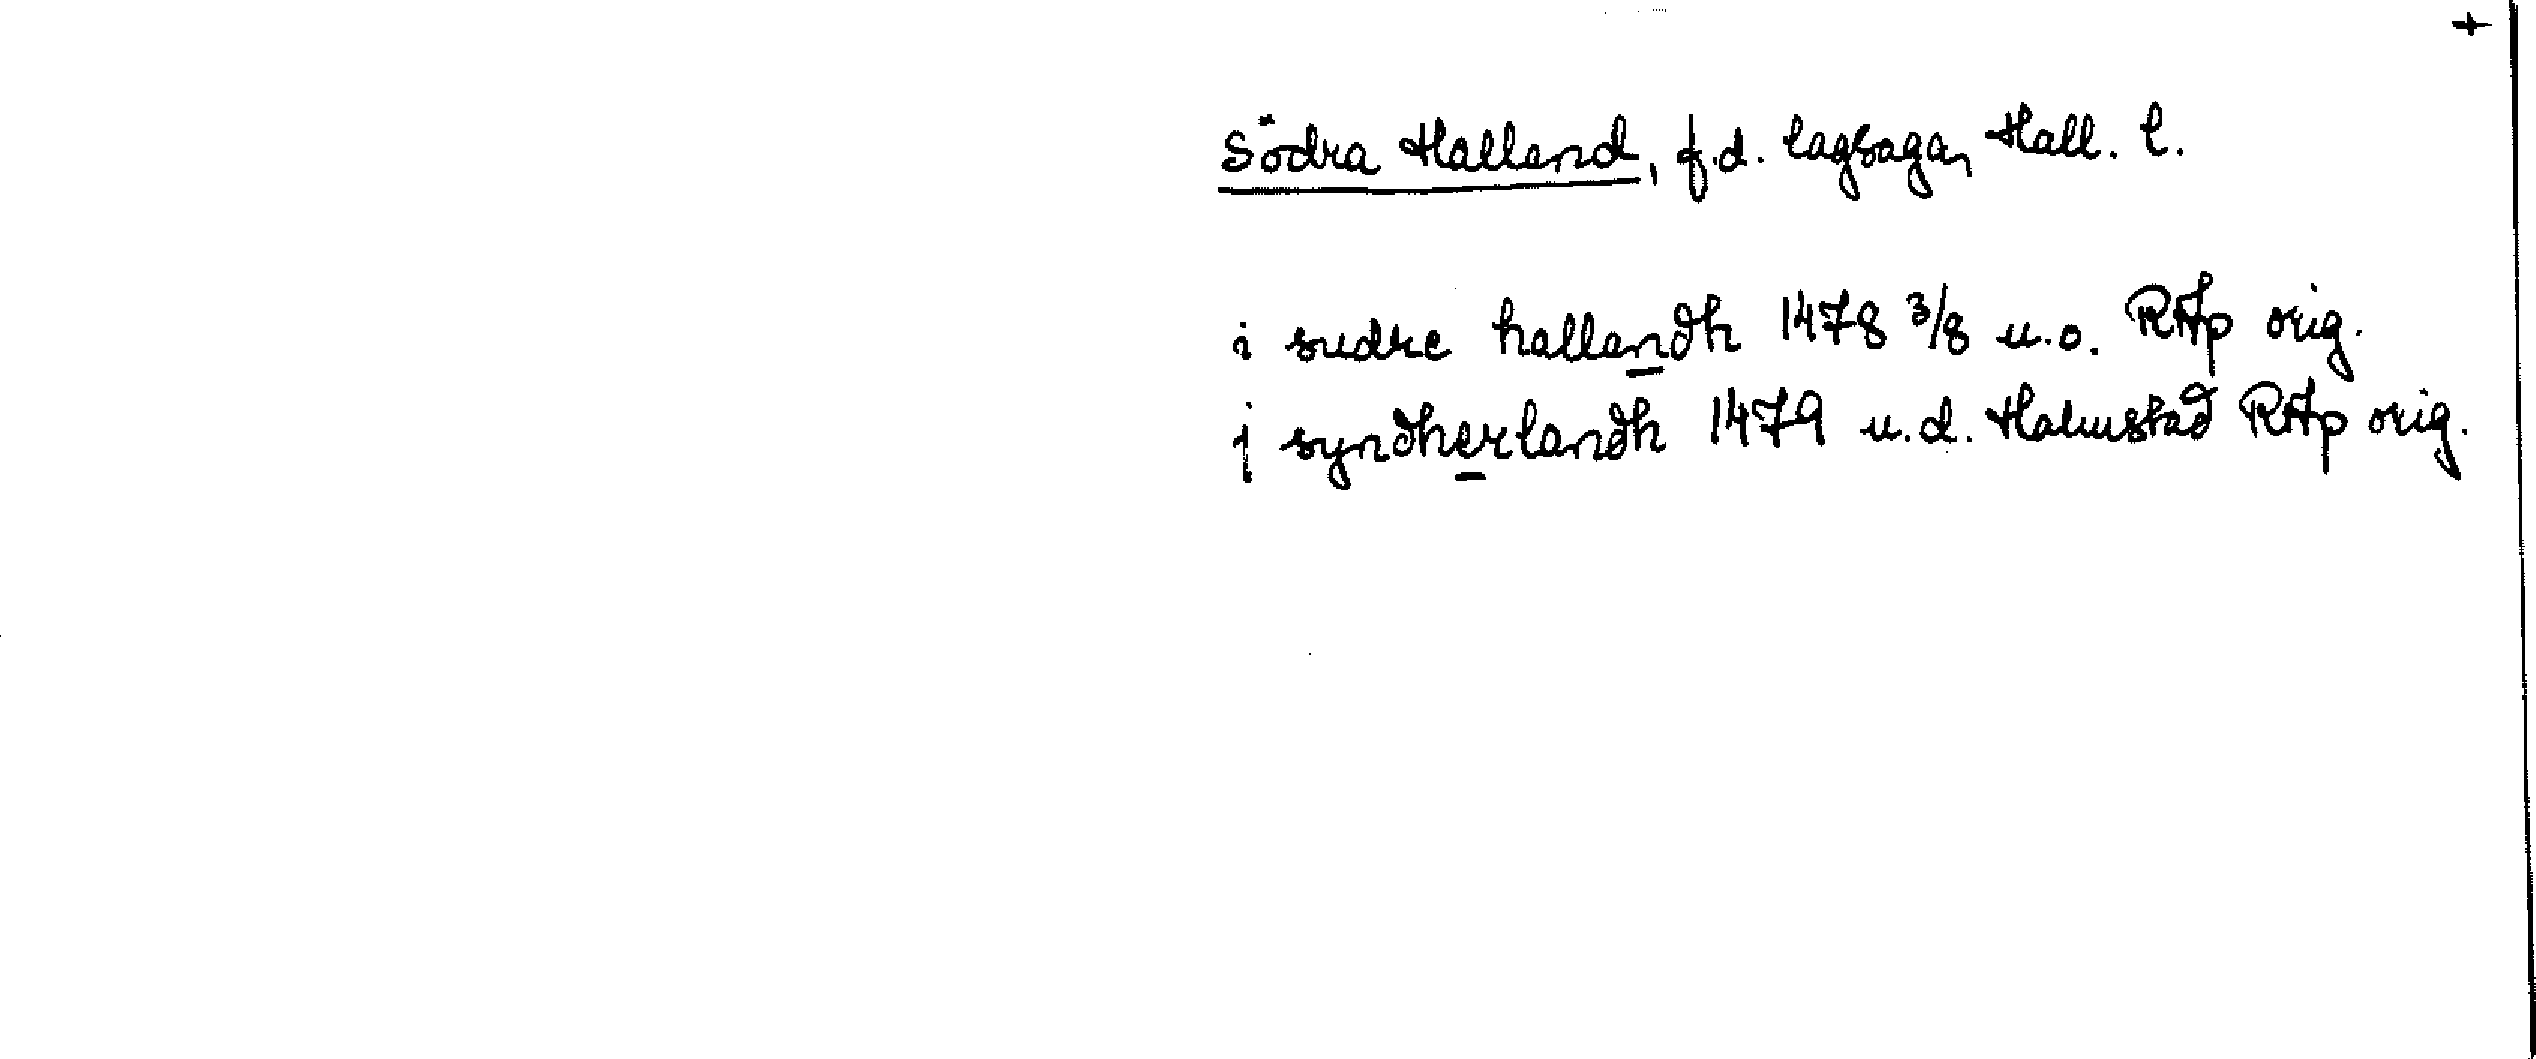 +
Södra Halland, f.d. lagsaga, Hall. l.
i sudre hallandh 1478 3/8 u.o. RAp orig.
j syndherlandh 1479 u.d. Halmstad RAp orig.